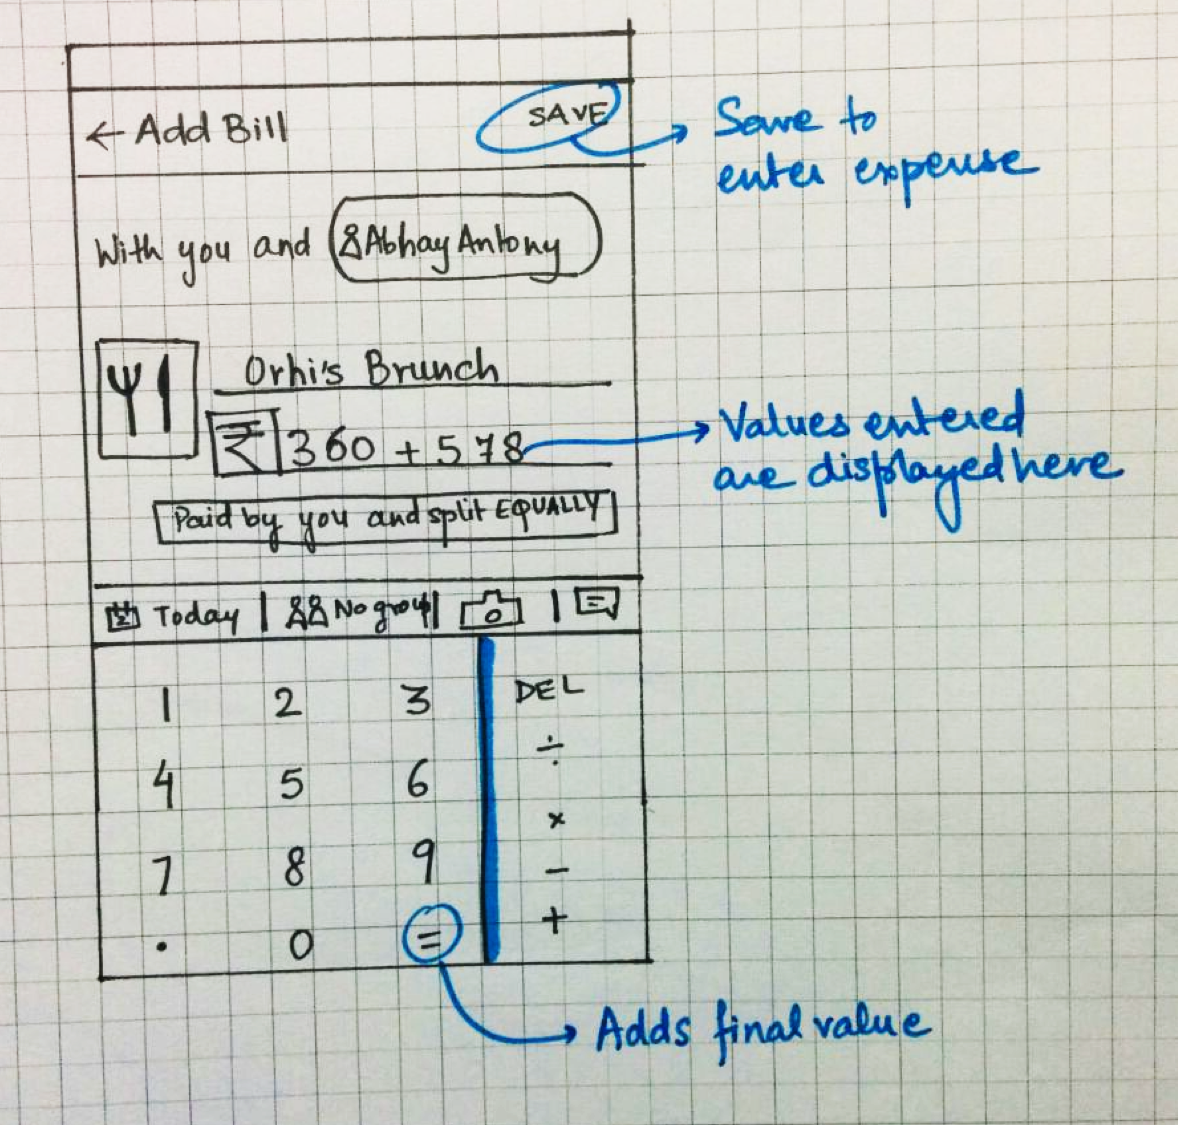 ← Add Bill
SAVE
Save to
enter expense
With you and Abhay Antony
Orhi's Brunch
₹ 360 + 578
Values entered
are displayed here
Paid by you and split EQUALLY
Today | No group | |
1 2 3 DEL
÷
4 5 6
×
7 8 9 −
. 0 = +
Adds final value